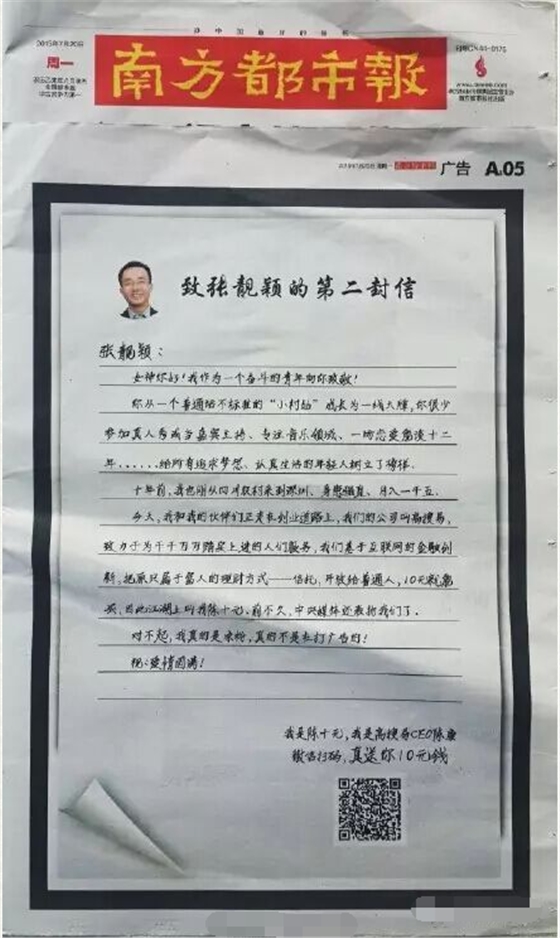 2015年7月20日
周一
南方都市報
刊号CN44-0175
广告 A05
致张靓颖的第二封信
张靓颖:
女神你好!我作为一个奋斗的青年向你致敬!
你从一个普通话不标准的“小村姑”成长为一线大牌,你很少
参加真人秀或当嘉宾主持、专注音乐领域、一场恋爱爱谈十二
年......给所有追求梦想、认真生活的年轻人树立了榜样.
十年前,我也刚从四川农村来到深圳、身患强直、月入一千五.
今天,我和我的伙伴们正走在创业道路上,我们的公司叫高搜易,
致力于为千千万万踏实上进的人们服务,我们基于互联网的金融创
新,把原只属于富人的理财方式——信托,开放给普通人,10元就能
买,因此江湖上叫我陈十元.前不久,中央媒体还表扬我们了.
对不起,我真的是凉粉,真的不是在打广告的!
祝:爱情圆满!
我是陈十元,我是高搜易CEO陈康
微信扫码,真送你10元钱